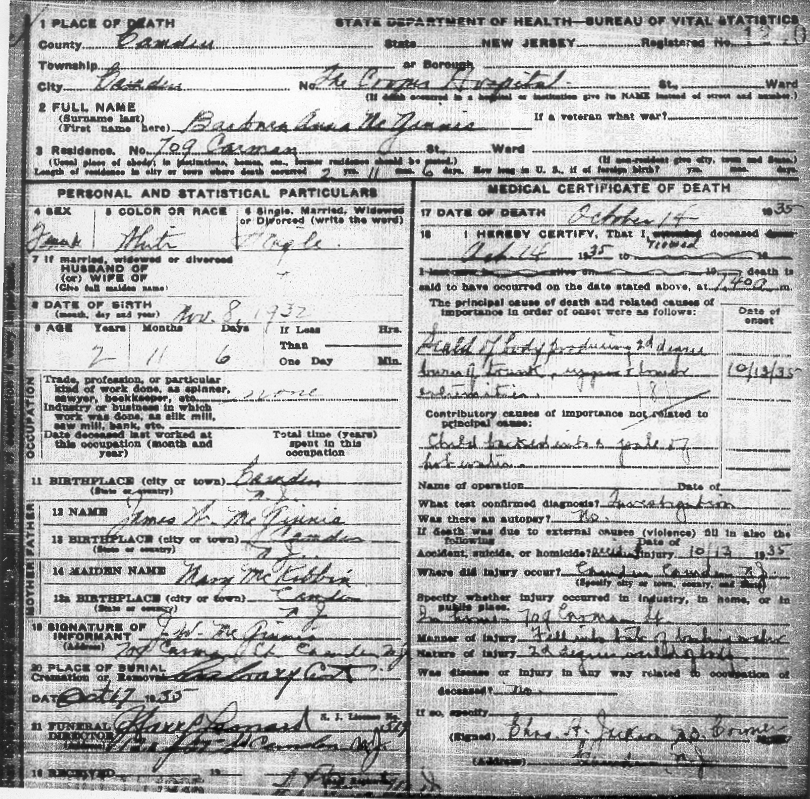 1 PLACE OF DEATH
STATE DEPARTMENT OF HEALTH—BUREAU OF VITAL STATISTICS
County Camden State NEW JERSEY Registered No.
Township or Borough
City Camden No. The Cooper Hospital St., Ward
(If death occurred in a hospital or institution give its NAME instead of street and number.)
2 FULL NAME
(Surname last)
(First name here) Barbara Anna McGinnis If a veteran what war?
3 Residence. No. 709 Carman St. Ward
(Usual place of abode, in institutions, homes, etc., former residence should be stated.) (If non-resident give city, town and State.)
Length of residence in city or town where death occurred 2 yrs. 11 mos. 6 days. How long in U. S., if of foreign birth? yrs. mos. days.
PERSONAL AND STATISTICAL PARTICULARS
4 SEX 5 COLOR OR RACE 6 Single, Married, Widowed
or Divorced (write the word)
White Single
7 If married, widowed or divorced
HUSBAND OF
(or) WIFE OF
(Give full maiden name)
8 DATE OF BIRTH
(month, day and year) Nov. 8, 1932
9 AGE Years Months Days If Less Hrs.
Than
2 11 6 One Day Min.
OCCUPATION
Trade, profession, or particular
kind of work done, as spinner,
sawyer, bookkeeper, etc. none
Industry or business in which
work was done, as silk mill,
saw mill, bank, etc.
Date deceased last worked at
this occupation (month and
year)
Total time (years)
spent in this
occupation
11 BIRTHPLACE (city or town) Camden
(State or country) N. J.
FATHER
12 NAME James W. McGinnis
13 BIRTHPLACE (city or town) Camden
(State or country) N. J.
MOTHER
14 MAIDEN NAME Mary McKibbin
BIRTHPLACE (city or town) Camden
(State or country) N J
SIGNATURE OF
INFORMANT J. W. McGinnis
(Address) 709 Carman St. Camden N.J.
20 PLACE OF BURIAL
Cremation or Removal Calvary Cem
DATE Oct 17 1935
21 FUNERAL
DIRECTOR Leonard N. J. License No.
(Address) Camden N.J.
RECEIVED 19
MEDICAL CERTIFICATE OF DEATH
17 DATE OF DEATH October 14 1935
18 I HEREBY CERTIFY, That I viewed deceased from
Oct 14 1935 to 19
death is
said to have occurred on the date stated above, at 1.40 a m.
The principal cause of death and related causes of
importance in order of onset were as follows:
Date of
onset
Scald of body producing 2d degree
burns of trunk, upper & lower 10/13/35
extremities.
Contributory causes of importance not related to
principal cause:
Child backed into a pale of
hot water.
Name of operation Date of
What test confirmed diagnosis? Investigation
Was there an autopsy? No.
If death was due to external causes (violence) fill in also the
following
Date of
Accident, suicide, or homicide? accident injury 1935
Where did injury occur? Camden Camden N.J
(Specify city or town, county, and State)
Specify whether injury occurred in industry, in home, or in
public place.
In home 709 Carman St.
Manner of injury Fell into water
Nature of injury 2d degree scald of body
Was disease or injury in any way related to occupation of
deceased? No.
If so, specify
(Signed) Chas. H. Jackson M.D. Coroner
Camden N.J